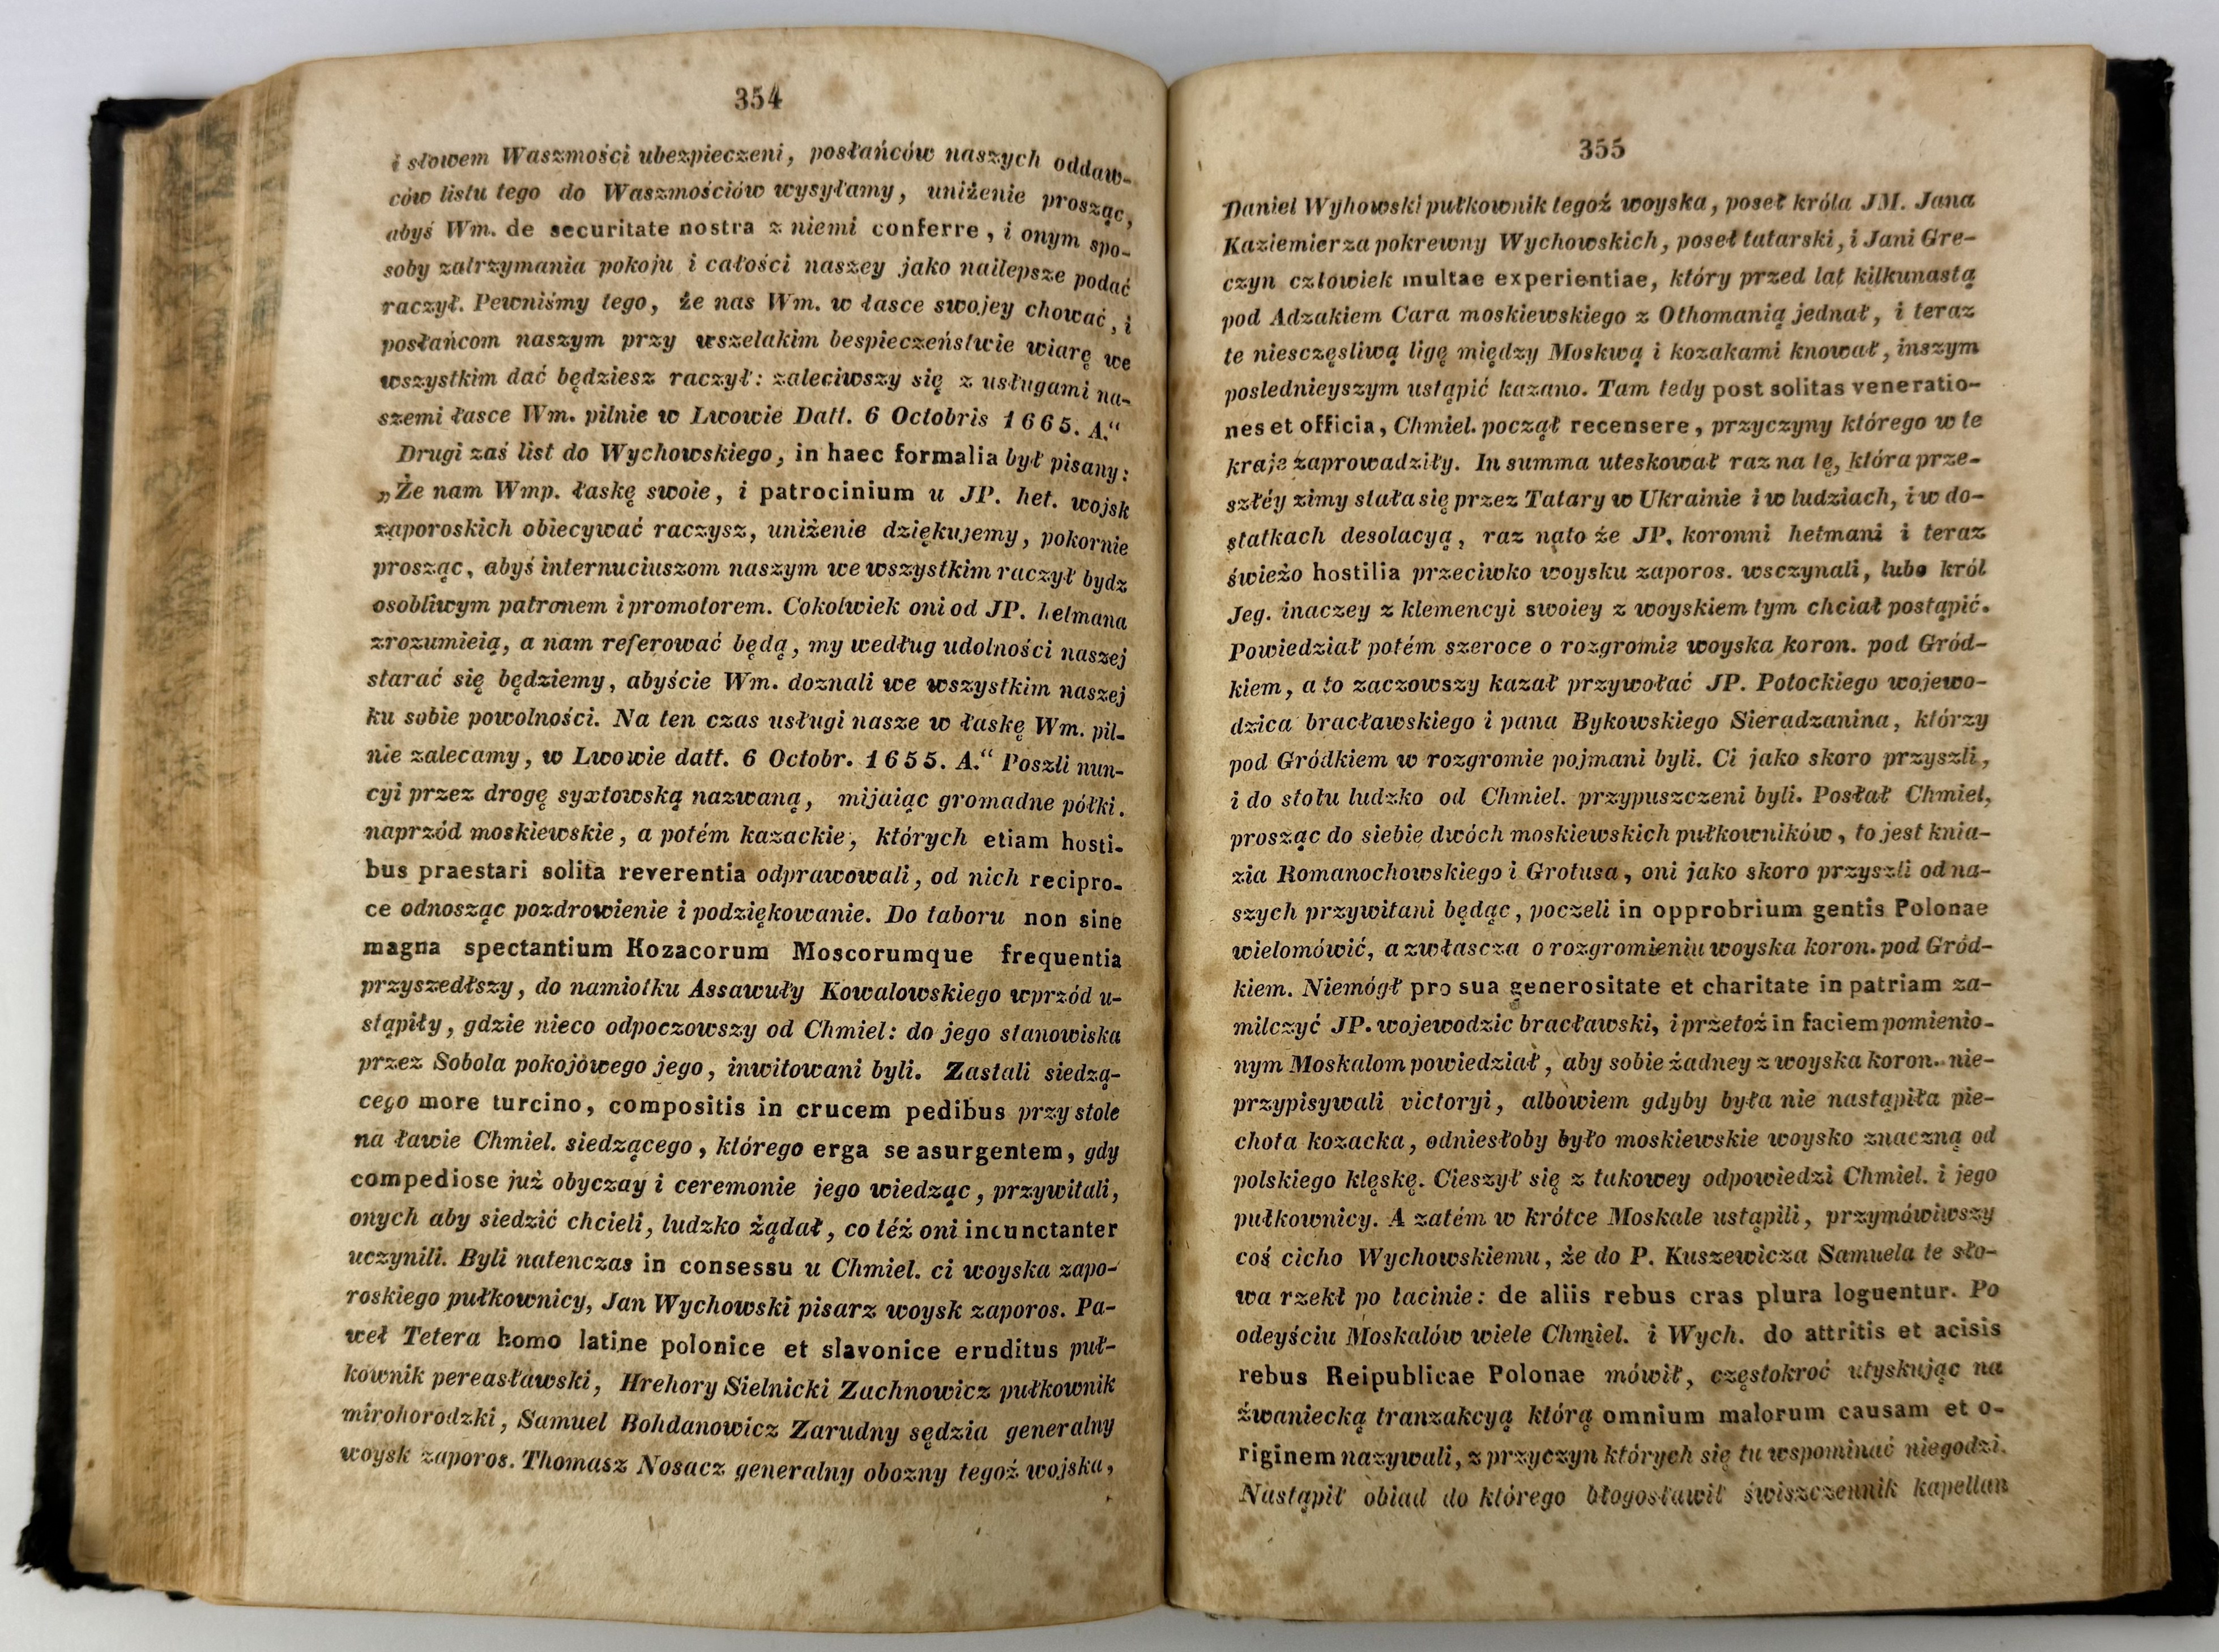 354
i słowem Waszmości ubezpieczeni, posłańców naszych oddaw-
ców listu tego do Waszmościów wysyłamy, uniżenie prosząc,
abyś Wm. de securitate nostra z niemi conferre, i onym spo-
soby zatrzymania pokoju i całości naszey jako nailepsze podać
raczył. Pewniśmy tego, że nas Wm. w łasce swojey chować, i
posłańcom naszym przy wszelakim bespieczeństwie wiarę we
wszystkim dać będziesz raczył: zaleciwszy się z usługami na-
szemi łasce Wm. pilnie w Lwowie Datt. 6 Octobris 1665. A.“
Drugi zaś list do Wychowskiego, in haec formalia był pisany:
„Że nam Wmp. łaskę swoie, i patrocinium u JP. het. wojsk
zaporoskich obiecywać raczysz, uniżenie dziękujemy, pokornie
prosząc, abyś internuciuszom naszym we wszystkim raczył bydz
osobliwym patronem i promotorem. Cokolwiek oni od JP. hetmana
zrozumieią, a nam referować będą, my według udolności naszej
starać się będziemy, abyście Wm. doznali we wszystkim naszej
ku sobie powolności. Na ten czas usługi nasze w łaskę Wm. pil-
nie zalecamy, w Lwowie datt. 6 Octobr. 1655. A.“ Poszli nun-
cyi przez drogę syxtowską nazwaną, mijaiąc gromadne półki.
naprzód moskiewskie, a potém kazackie, których etiam hosti-
bus praestari solita reverentia odprawowali, od nich recipro-
ce odnosząc pozdrowienie i podziękowanie. Do taboru non sine
magna spectantium Kozacorum Moscorumque frequentia
przyszedłszy, do namiotku Assawuły Kowalowskiego wprzód u-
stąpiły, gdzie nieco odpoczowszy od Chmiel: do jego stanowiska
przez Sobola pokojówego jego, inwitowani byli. Zastali siedzą-
cego more turcino, compositis in crucem pedibus przy stole
na ławie Chmiel. siedzącego, którego erga se asurgentem, gdy
compediose już obyczay i ceremonie jego wiedząc, przywitali,
onych aby siedzić chcieli, ludzko żądał, co téż oni incunctanter
uczynili. Byli natenczas in consessu u Chmiel. ci woyska zapo-
roskiego pułkownicy, Jan Wychowski pisarz woysk zaporos. Pa-
weł Tetera homo latine polonice et slavonice eruditus puł-
kownik pereasławski, Hrehory Sielnicki Zachnowicz pułkownik
mirohorodzki, Samuel Bohdanowicz Zarudny sędzia generalny
woysk zaporos. Thomasz Nosacz generalny obozny tegoż wojska,
355
Daniel Wyhowski pułkownik tegoż woyska, poseł króla JM. Jana
Kaziemierza pokrewny Wychowskich, poseł tatarski, i Jani Gre-
czyn człowiek multae experientiae, który przed lat kilkunastą
pod Adzakiem Cara moskiewskiego z Othomanią jednał, i teraz
te niesczęsliwą ligę między Moskwą i kozakami knował, inszym
poslednieyszym ustąpić kazano. Tam tedy post solitas veneratio-
nes et officia, Chmiel. począł recensere, przyczyny którego w te
kraje zaprowadziły. In summa uteskował raz na tę, która prze-
szłéy zimy stała się przez Tatary w Ukrainie i w ludziach, i w do-
statkach desolacyą, raz nato że JP. koronni hetmani i teraz
świeżo hostilia przeciwko woysku zaporos. wsczynali, lubo król
Jeg. inaczey z klemencyi swoiey z woyskiem tym chciał postąpić.
Powiedział potém szeroce o rozgromie woyska koron. pod Gród-
kiem, a to zaczowszy kazał przywołać JP. Potockiego wojewo-
dzica bracławskiego i pana Bykowskiego Sieradzanina, którzy
pod Gródkiem w rozgromie pojmani byli. Ci jako skoro przyszli,
i do stołu ludzko od Chmiel. przypuszczeni byli. Posłał Chmiel,
prosząc do siebie dwóch moskiewskich pułkowników, to jest knia-
zia Romanochowskiego i Grotusa, oni jako skoro przyszli od na-
szych przywitani będąc, poczeli in opprobrium gentis Polonae
wielomówić, a zwłascza o rozgromieniu woyska koron. pod Gród-
kiem. Niemógł pro sua generositate et charitate in patriam za-
milczyć JP. wojewodzic bracławski, i przetoż in faciem pomienio-
nym Moskalom powiedział, aby sobie żadney z woyska koron. nie-
przypisywali victoryi, albowiem gdyby była nie nastąpiła pie-
chota kozacka, odniesłoby było moskiewskie woysko znaczną od
polskiego klęskę. Cieszył się z takowey odpowiedzi Chmiel. i jego
pułkownicy. A zatém w krótce Moskale ustąpili, przymówiwszy
coś cicho Wychowskiemu, że do P. Kuszewicza Samuela te sło-
wa rzekł po łacinie: de aliis rebus cras plura loguentur. Po
odeyściu Moskalów wiele Chmiel. i Wych. do attritis et acisis
rebus Reipublicae Polonae mówił, częstokroć utyskując na
żwaniecką tranzakcyą którą omnium malorum causam et o-
riginem nazywali, z przyczyn których się tu wspominać niegodzi.
Nastąpił obiad do którego błogosławił świszczennik kapellan